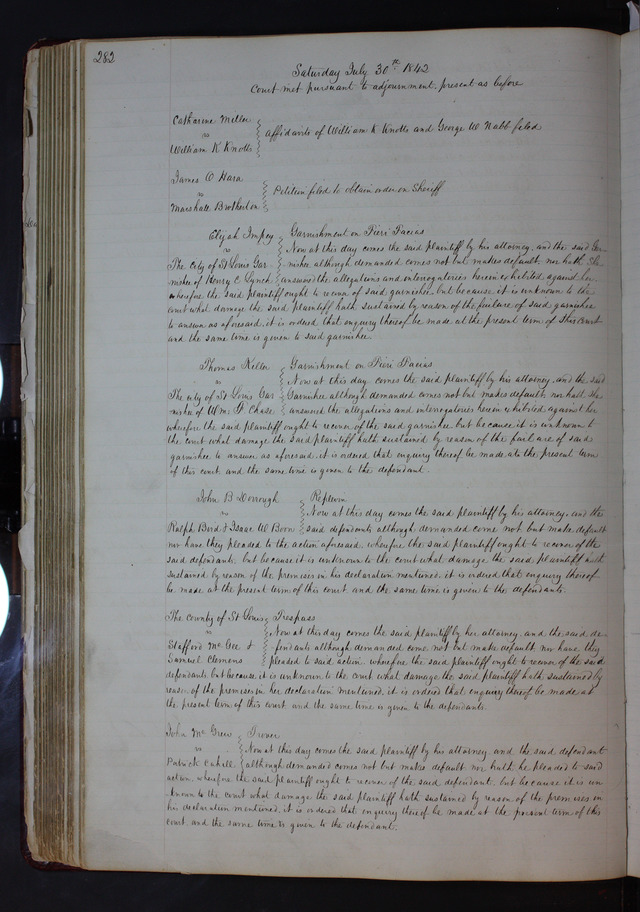 282
Saturday July 30th 1842
Court met pursuant to adjournment, present as before
Catharine Miller
vs
William K Knotts
affidavits of William K Knotts and George W Nabb filed
James O Hara
vs
Marshall Brotherton
Petition filed to obtain order on Sheriff
Elijah Impey
vs
The City of St Louis Gar
nishee of Henry C Lynch
Garnishment on Fieri Facias
Now at this day comes the said plaintiff by his attorney, and the said Gar
nishee although demanded comes not but makes default, nor hath she
answered the allegations and interogatories herein exhibited against her
wherefore the said plaintiff ought to recover of said garnishee, but because it is unknown to the
court what damage the said plaintiff hath sustained by reason of the failure of said garnishee
to answer as aforesaid, it is ordered that enquiry thereof be made at the present term of this court
and the same time is given to said garnishee.
Thomas
vs
The city of St Louis Gar
nishee of Wm P Chase
Garnishment on Fieri Facias
Now at this day comes the said plaintiff by his attorney, and the said
Garnishee although demanded comes not but makes default, nor hath she
answered the allegations and interogatories herein exhibited against her
wherefore the said plaintiff ought to recover of the said garnishee but because it is unknown to
the court what damage the said plaintiff hath sustained by reason of the failure of said
garnishee to answer as aforesaid, it is ordered that enquiry thereof be made at the present term
of this court and the same time is given to the defendant.
John B Dorrough
vs
Ralph Bird & Isaac W Born
Replevin
Now at this day comes the said plaintiff by his attorney, and the
said defendants although demanded come not but make default
nor have they pleaded to the action aforesaid, wherefore the said plaintiff ought to recover of the
said defendants, but because it is unknown to the court what damage the said plaintiff hath
sustained by reason of the premises in his declaration mentioned, it is ordered that enquiry thereof
be made at the present term of this court and the same time is given to the defendants.
The county of St Louis
vs
Stafford McGee &
Samuel Clemens
Trespass
Now at this day comes the said plaintiff by her attorney and the said de
fendants although demanded come not but make default nor have they
pleaded to said action, wherefore the said plaintiff ought to recover of the said
defendants but because it is unknown to the court what damage the said plaintiff hath sustained by
reason of the premises in her declaration mentioned, it is ordered that enquiry thereof be made at
the present term of this court and the same time is given to the defendants.
John McGrew
vs
Patrick Cahill
Trover
Now at this day comes the said plaintiff by his attorney and the said defendant
although demanded comes not but makes default nor hath he pleaded to said
action, wherefore the said plaintiff ought to recover of the said defendant, but because it is un
known to the court what damage the said plaintiff hath sustained by reason of the premises in
his declaration mentioned, it is ordered that enquiry thereof be made at the present term of this
court and the same time is given to the defendant.